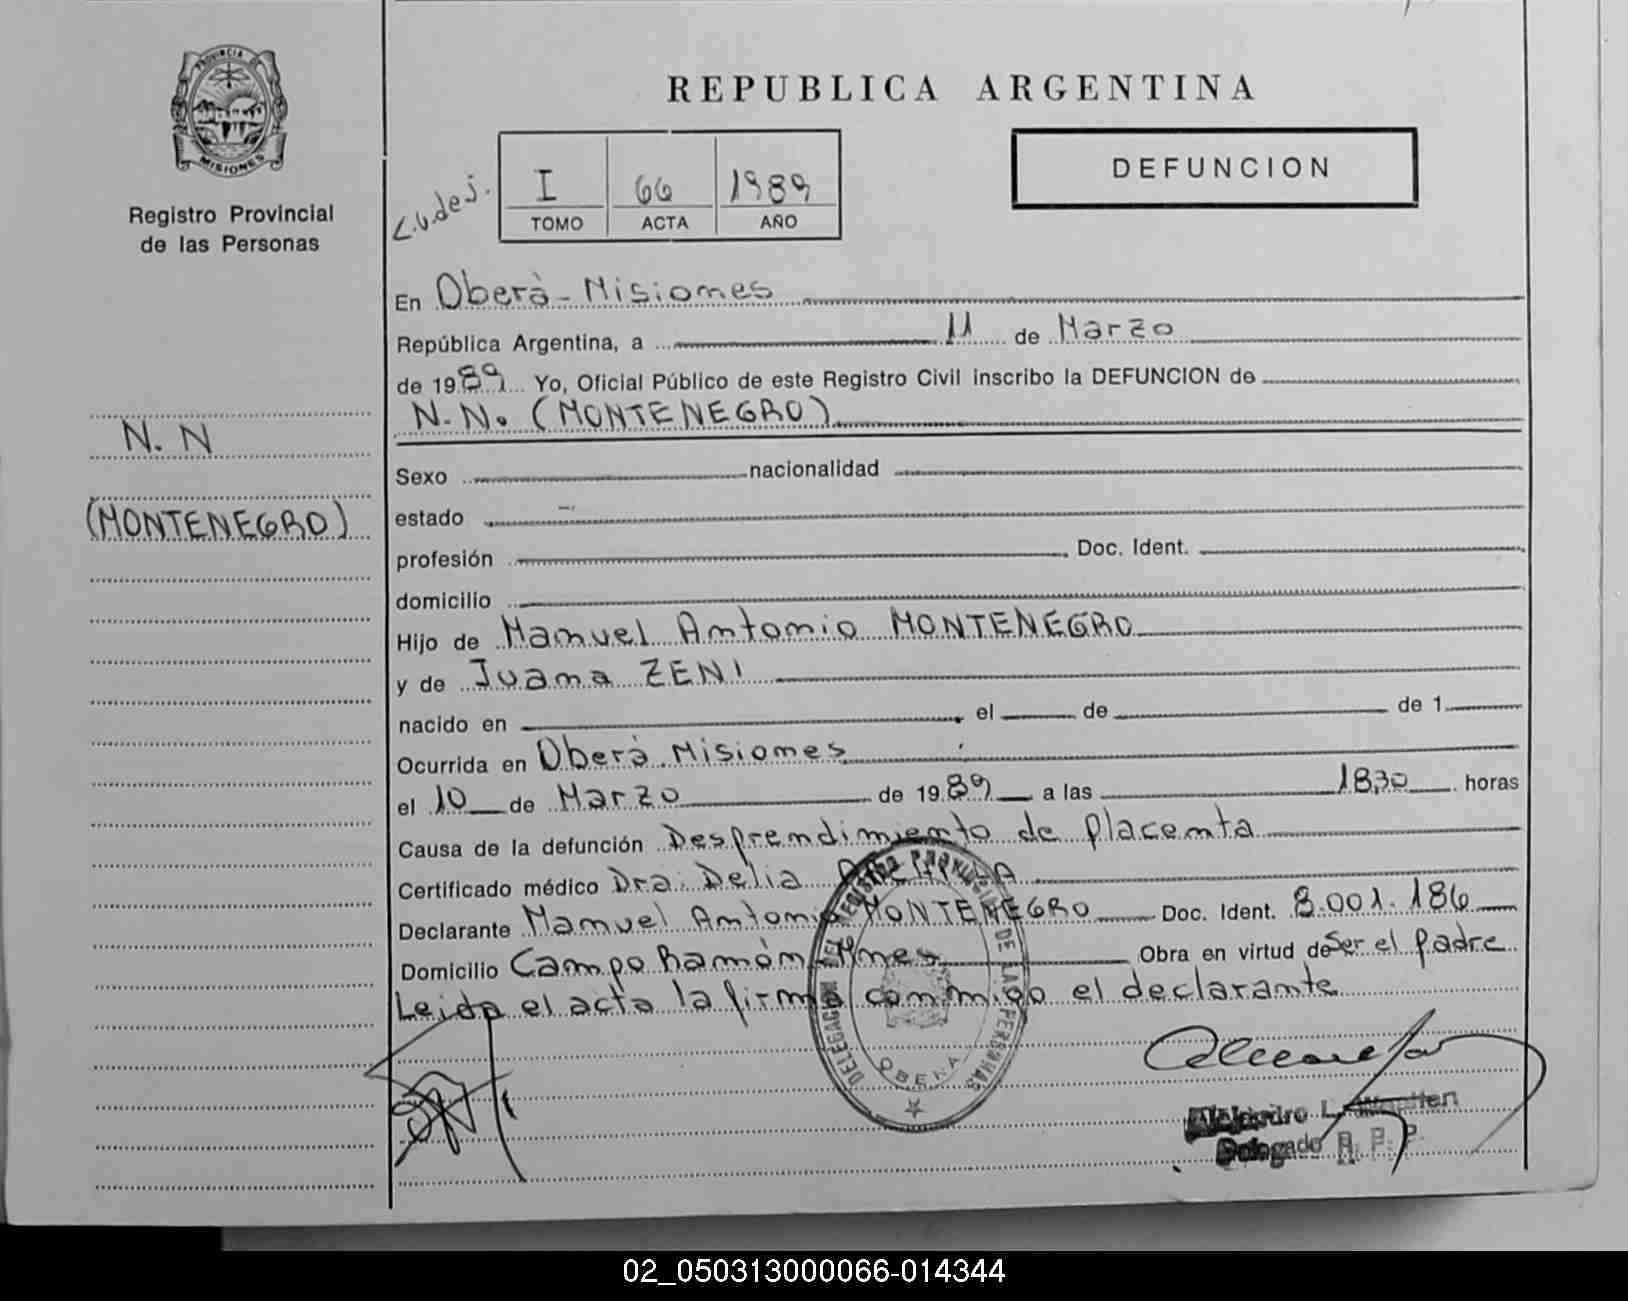 PROVINCIA DE
MISIONES
Registro Provincial
de las Personas
N. N
(MONTENEGRO)
REPUBLICA ARGENTINA
DEFUNCION
I 66 1989
TOMO ACTA AÑO
En Oberà - Misiones
República Argentina, a 11 de Marzo
de 1989 Yo, Oficial Público de este Registro Civil inscribo la DEFUNCION de
N.N. (MONTENEGRO)
Sexo nacionalidad
estado
profesión Doc. Ident.
domicilio
Hijo de Manuel Antonio MONTENEGRO
y de Juana ZENI
nacido en el de de 1
Ocurrida en Oberà Misiones
el 10 de Marzo de 1989 a las 18,30 horas
Causa de la defunción Desprendimiento de placenta
Certificado médico Dra. Delia
Declarante Manuel Antonio MONTENEGRO Doc. Ident. 8.001.186
Domicilio Campo Ramón Mnes Obra en virtud de Ser el padre
Leida el acta la firma conmigo el declarante
DELEGACION DEL REGISTRO PROVINCIAL DE LAS PERSONAS
OBERA
Alejandro L.
Delegado R. P. P.
02_050313000066-014344